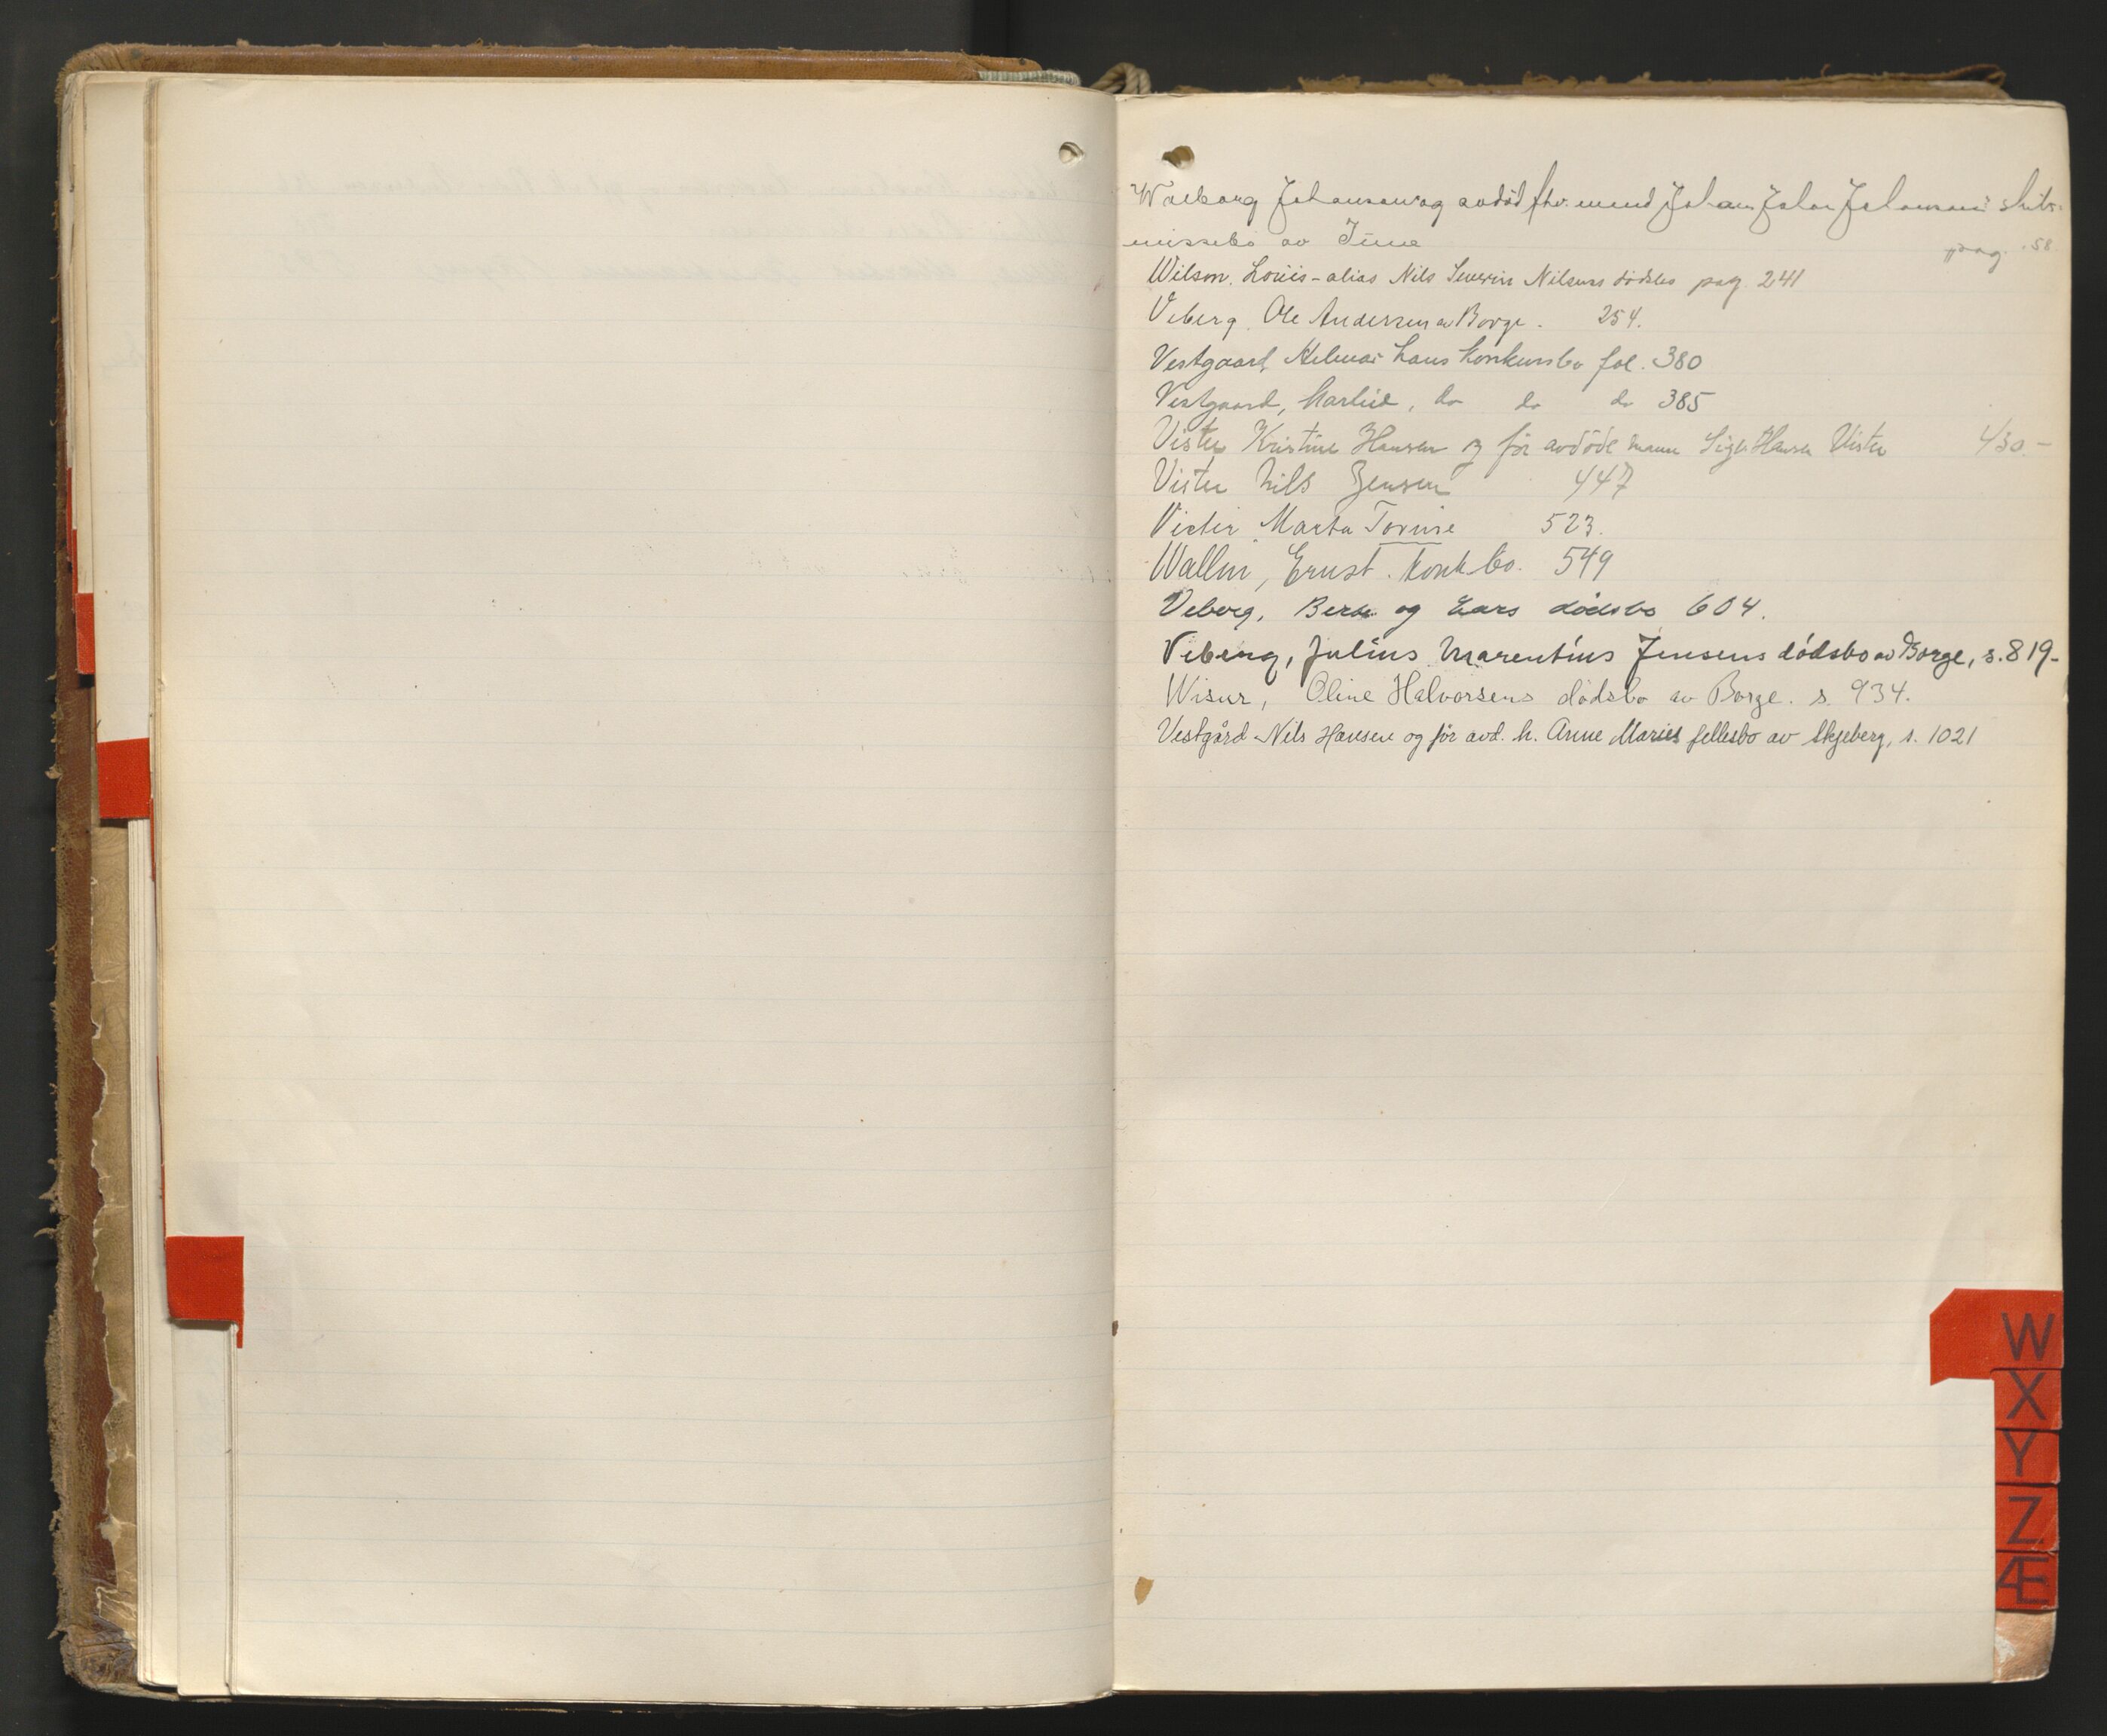 Walborg Johansen og avdød fhv. mand Johan Johan Johansens skifte-
missebo av Tune pag. 58
Wilson. Louis - alias Nils Severin Nilsens dødsbo pag. 241
Viberg, Ole Andersen av Borge. 254.
Vestgaard, Helmar Laus konkursbo fol. 380
Vestgaard, Karlid, do do do 385
Vister Kristine Hansen og før avdøde mann Hansen Vister 430.-
Vister Nils Jensen 447
Vister Marta Tovine 523.
Wallin, Ernst. konk bo. 549
Veberg, og Lars dødsbo 604.
Viberg, Julius Marentius Jensens dødsbo av Borge, s. 819-
Wisur, Oline Halvorsens dødsbo av Borge. s. 934.
Vestgård Nils Hansen og før avd. h. Anne Maries fellesbo av Skjeberg, s. 1021
W
X
Y
Z
Æ